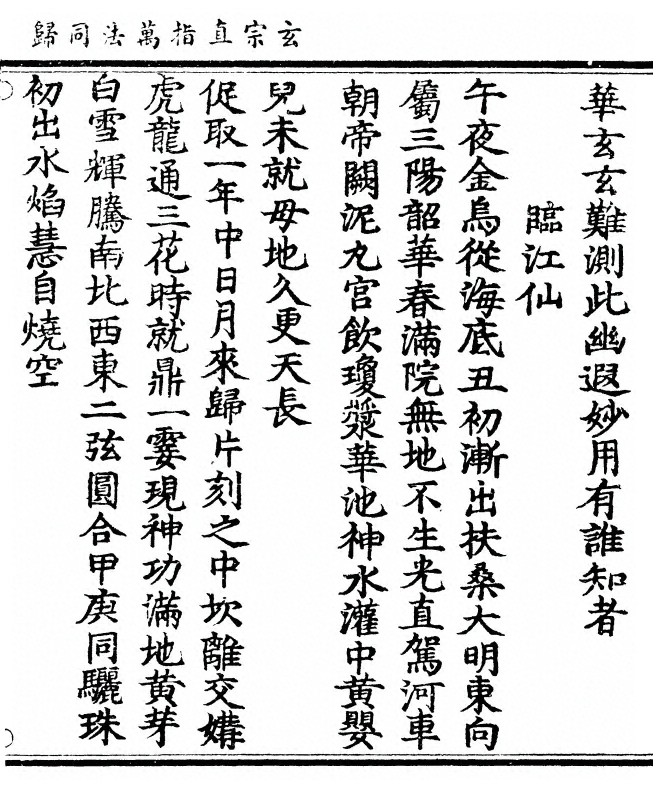 玄宗直指萬法同歸
華玄玄難測此幽遐妙用有誰知者
臨江仙
午夜金烏從海底丑初漸出扶桑大明東向
屬三陽韶華春滿院無地不生光直駕河車
朝帝闕泥丸宮飲瓊漿華池神水灌中黃嬰
兒未就母地久更天長
促取一年中日月來歸片刻之中坎離交媾
虎龍通三花時就鼎一霎現神功滿地黃芽
白雪輝騰南北西東二弦圓合甲庚同驪珠
初出水焰慧自燒空